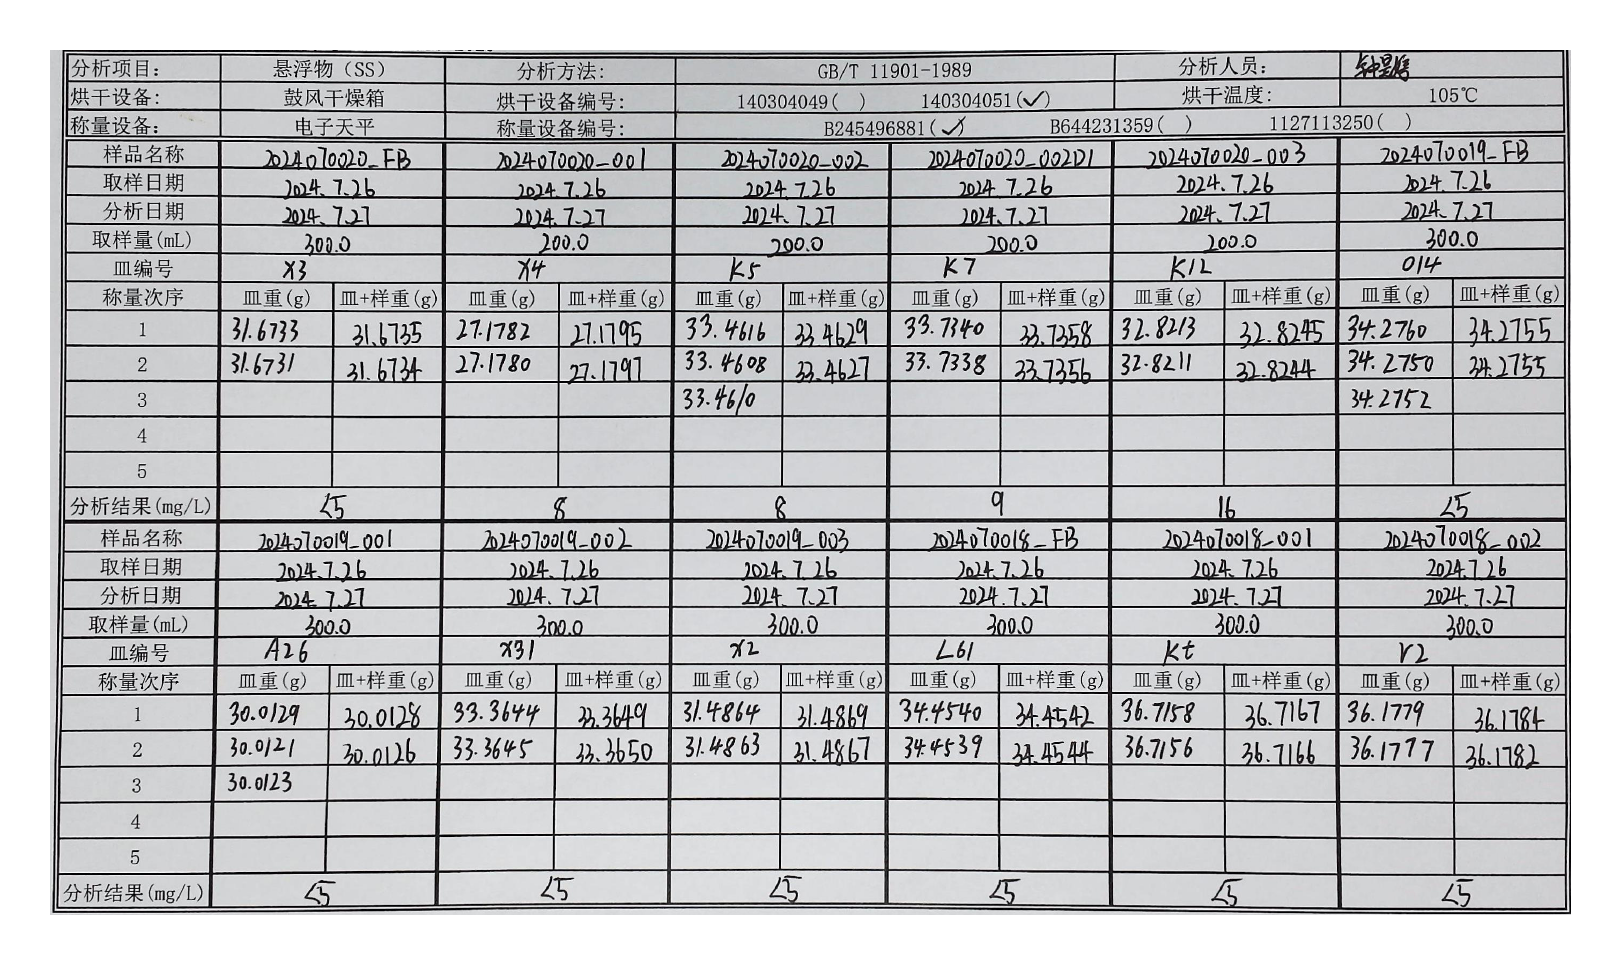 分析项目： 悬浮物（SS） 分析方法： GB/T 11901-1989 分析人员：
烘干设备: 鼓风干燥箱 烘干设备编号: 140304049( ) 140304051(✓) 烘干温度: 105℃
称量设备: 电子天平 称量设备编号: B245496881(✓) B644231359( ) 1127113250( )
样品名称 2024070020_FB 2024070020-001 2024070020-002 2024070020-002D1 2024070020-003 2024070019_FB
取样日期 2024.7.26 2024.7.26 2024.7.26 2024.7.26 2024.7.26 2024.7.26
分析日期 2024.7.27 2024.7.27 2024.7.27 2024.7.27 2024.7.27 2024.7.27
取样量(mL) 300.0 200.0 200.0 200.0 200.0 300.0
皿编号 X3 X4 K5 K7 K12 014
称量次序 皿重(g) 皿+样重(g) 皿重(g) 皿+样重(g) 皿重(g) 皿+样重(g) 皿重(g) 皿+样重(g) 皿重(g) 皿+样重(g) 皿重(g) 皿+样重(g)
1 31.6733 31.6735 27.1782 27.1795 33.4616 33.4629 33.7340 33.7358 32.8213 32.8245 34.2760 34.2755
2 31.6731 31.6734 27.1780 27.1797 33.4608 33.4627 33.7338 33.7356 32.8211 32.8244 34.2750 34.2755
3 33.4610 34.2752
4
5
分析结果(mg/L) <5 8 8 9 16 <5
样品名称 2024070019_001 2024070019_002 2024070019_003 2024070018_FB 2024070018_001 2024070018_002
取样日期 2024.7.26 2024.7.26 2024.7.26 2024.7.26 2024.7.26 2024.7.26
分析日期 2024.7.27 2024.7.27 2024.7.27 2024.7.27 2024.7.27 2024.7.27
取样量(mL) 300.0 300.0 300.0 300.0 300.0 300.0
皿编号 A26 X31 X2 L61 Kt V2
称量次序 皿重(g) 皿+样重(g) 皿重(g) 皿+样重(g) 皿重(g) 皿+样重(g) 皿重(g) 皿+样重(g) 皿重(g) 皿+样重(g) 皿重(g) 皿+样重(g)
1 30.0129 30.0128 33.3644 33.3649 31.4864 31.4869 34.4540 34.4542 36.7158 36.7167 36.1779 36.1784
2 30.0121 30.0126 33.3645 33.3650 31.4863 31.4867 34.4539 34.4544 36.7156 36.7166 36.1777 36.1782
3 30.0123
4
5
分析结果(mg/L) <5 <5 <5 <5 <5 <5